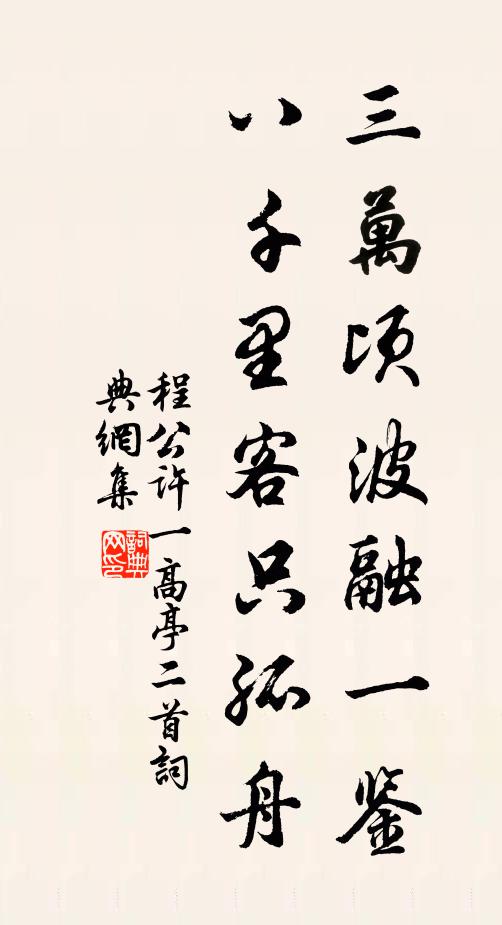 三萬頃波融一鉴
八千里客只孤舟
程公许一高亭二首詞
典網集
詞典网印